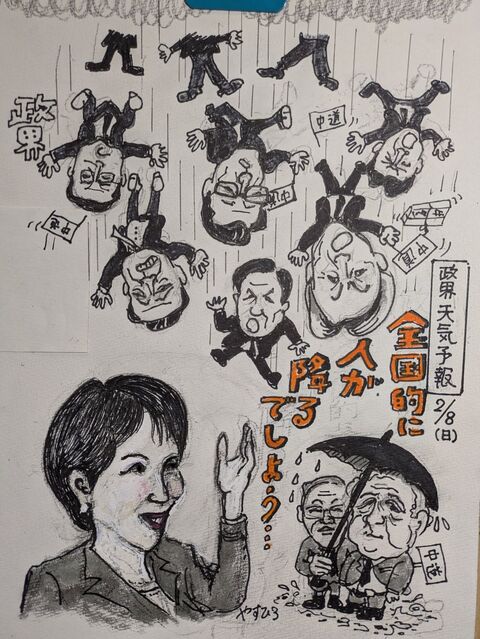 政界
中道
政界天気予報
2/8
(日)
全国的に
人が
降る
でしょう…
やすひろ